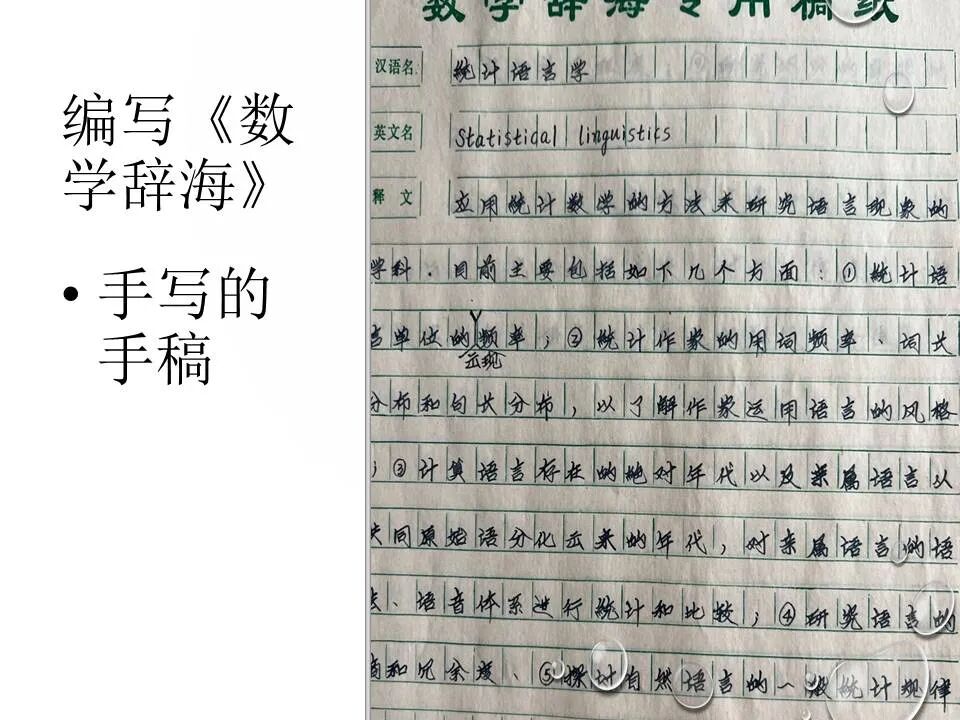 编写《数
学辞海》
• 手写的
手稿
数学辞海专用稿纸
汉语名 统计语言学
英文名 Statistidal linguistics
释文 应用统计数学的方法来研究语言现象的
学科．目前主要包括如下几个方面：①统计语
言单位的出现频率；②统计作家的用词频率、词长
分布和句长分布，以了解作家运用语言的风格
；③计算语言存在的绝对年代以及亲属语言从
共同原始语分化出来的年代，对亲属语言的语
法、语音体系进行统计和比较；④研究语言的
熵和冗余度、⑤探讨自然语言的一般统计规律